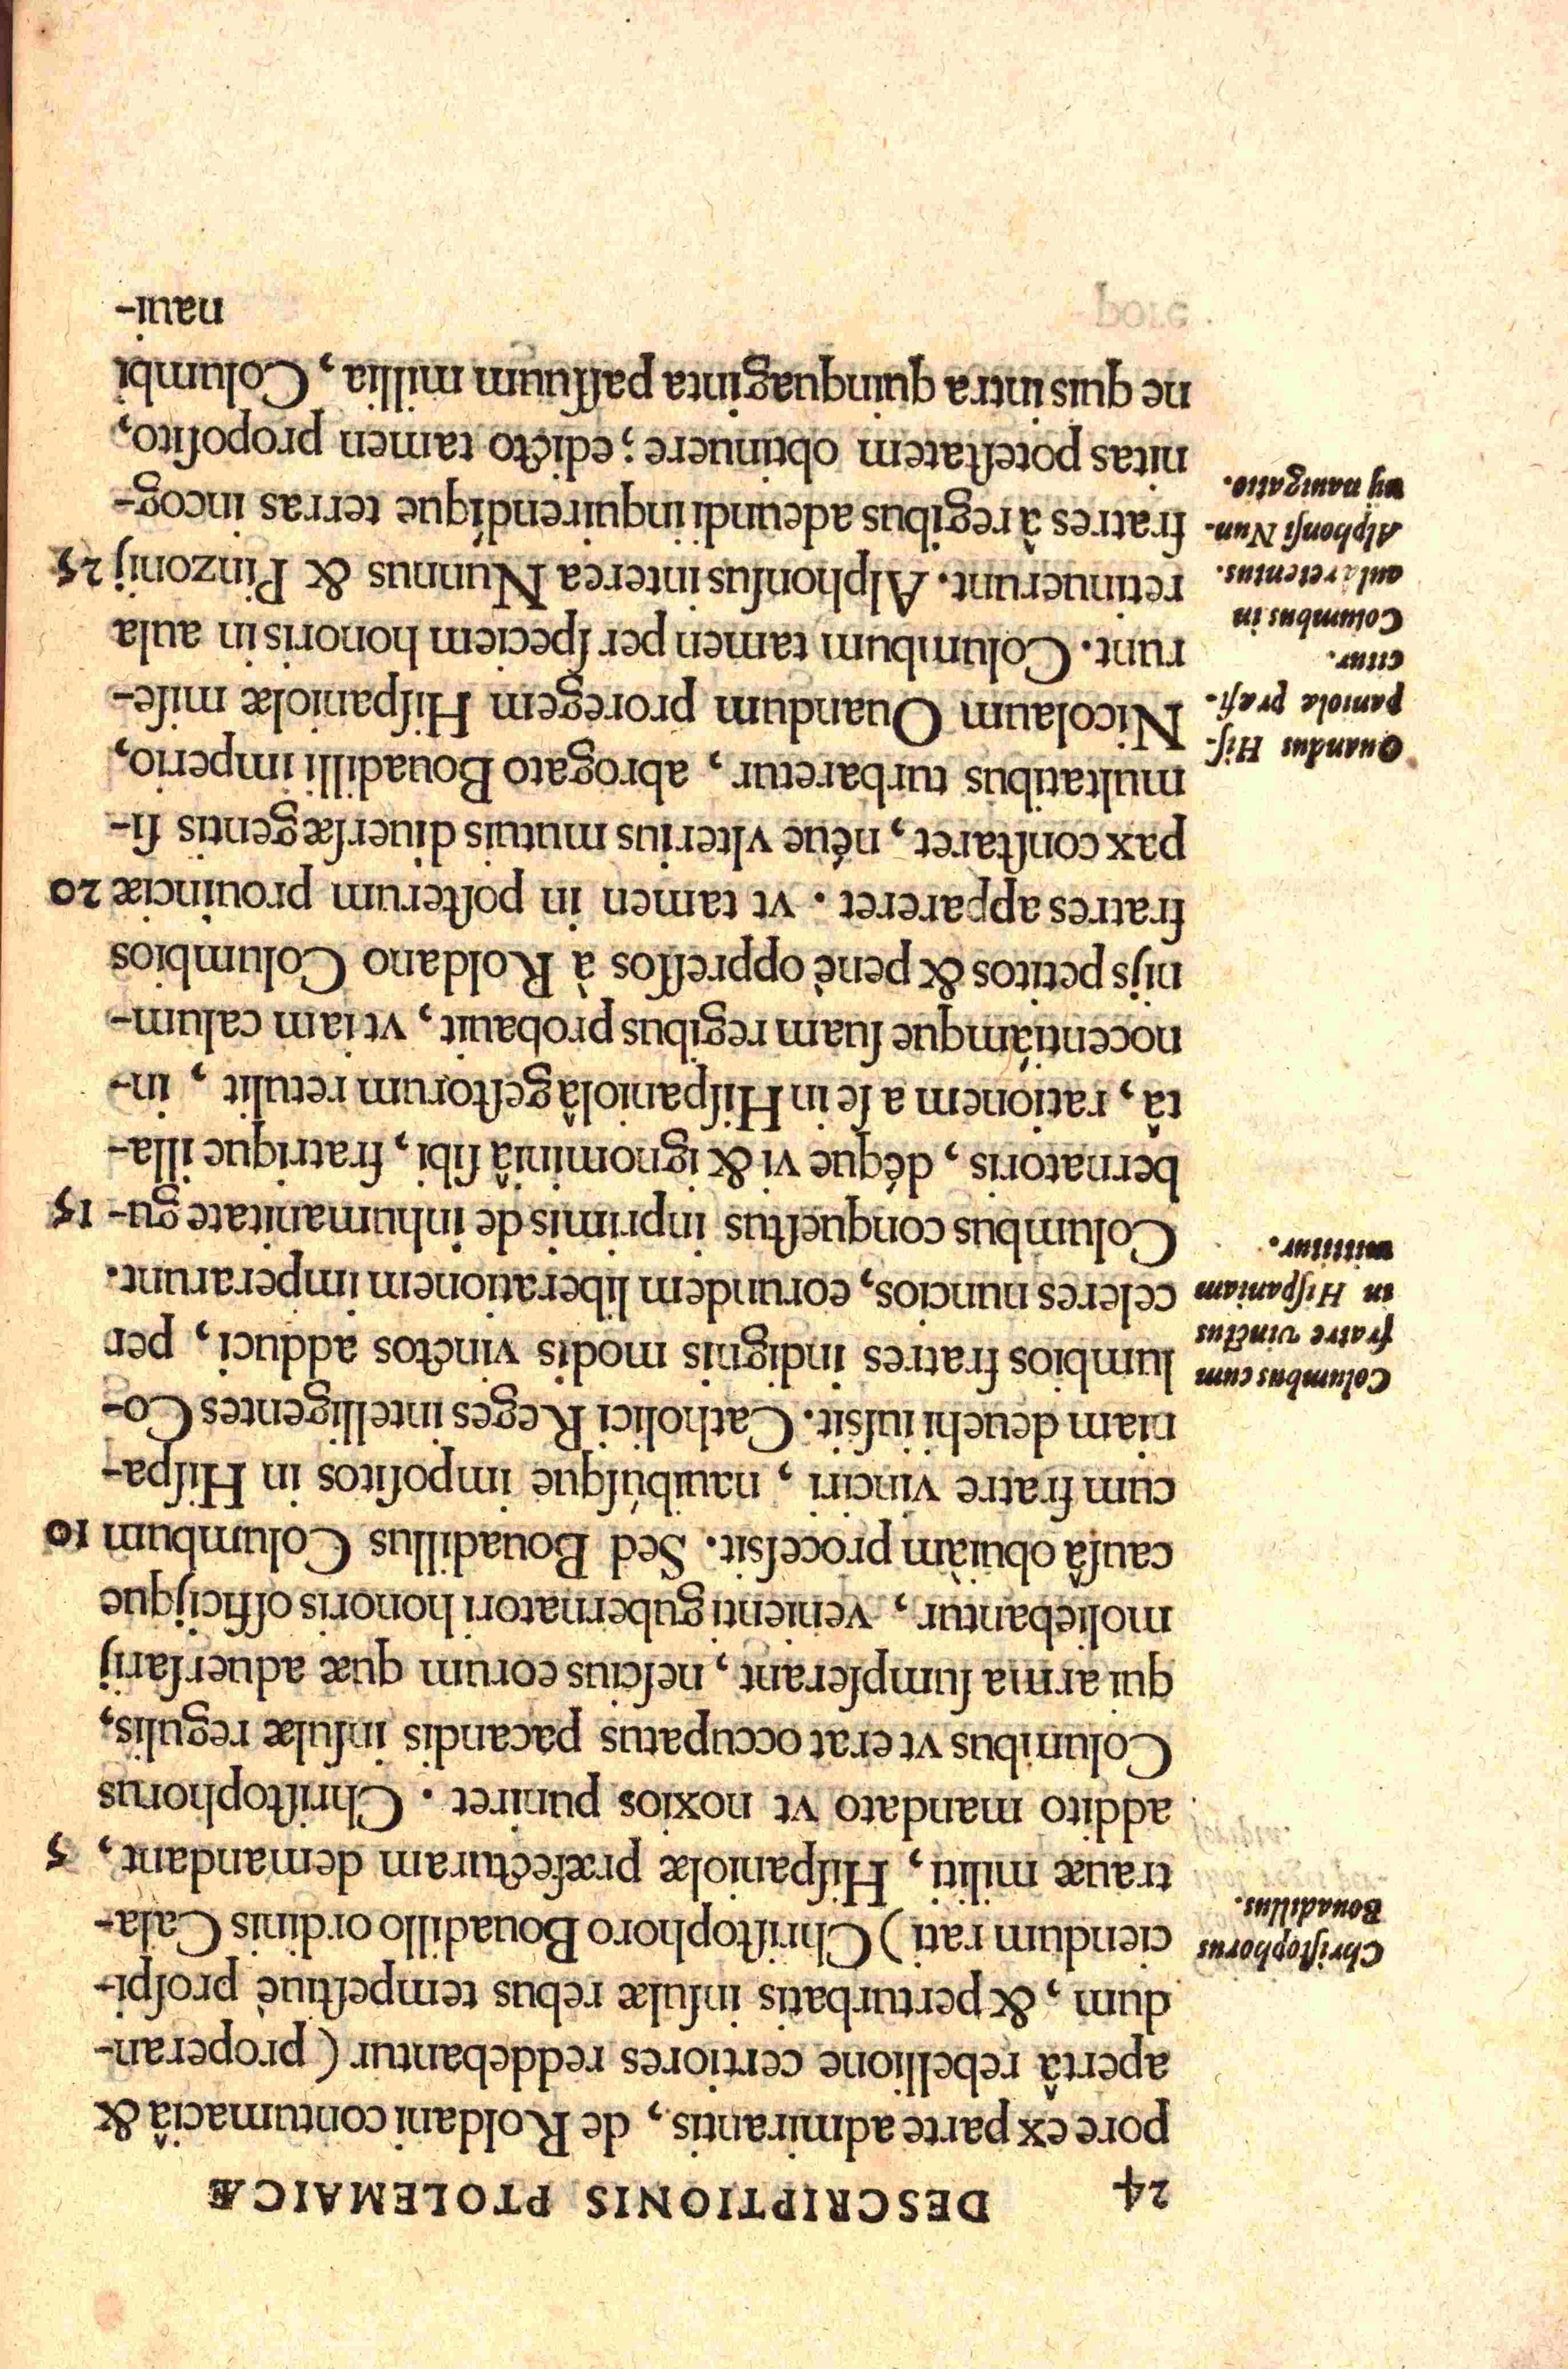 24 DESCRIPTIONIS PTOLEMAICÆ
pore ex parte admirantis, de Roldani contumaciâ &
apertâ rebellione certiores reddebantur (properan-
dum, & perturbatis insulæ rebus tempestiuè prospi-
ciendum rati) Christophoro Bouadillo ordinis Cala-
trauæ militi, Hispaniolæ præfecturam demandant, 5
addito mandato vt noxios puniret. Christophorus
Columbus vt erat occupatus pacandis insulæ regulis,
qui arma sumpserant, nescius eorum quæ aduersarij
moliebantur, venienti gubernatori honoris officijque
causâ obuiàm processit. Sed Bouadillus Columbum 10
cum fratre vinciri, nauibúsque impositos in Hispa-
niam deuehi iussit. Catholici Reges intelligentes Co-
lumbios fratres indignis modis vinctos adduci, per
celeres nuncios, eorumdem liberationem imperarunt.
Columbus conquestus inprimis de inhumanitate gu- 15
bernatoris, déque vi & ignominiâ sibi, fratrique illa-
tâ, rationem a se in Hispaniolâ gestorum retulit, in-
nocentiámque suam regibus probauit, vt iam calum-
nijs petitos & penè oppressos à Roldano Columbios
fratres appareret. vt tamen in posterum prouinciæ 20
pax constaret, néue vlterius mutuis diuersæ gentis si-
multatibus turbaretur, abrogato Bouadilli imperio,
Nicolaum Ouandum proregem Hispaniolæ mise-
runt. Columbum tamen per speciem honoris in aula
retinuerunt. Alphonsus interea Nunnus & Pinzonij 25
fratres à regibus adeundi inquirendíque terras incog-
nitas potestatem obtinuere; edicto tamen proposito,
ne quis intra quinquaginta passuum millia, Columbi
naui-
Christophorus
Bouadillus.
Columbus cum
fratre vinctus
in Hispaniam
mittitur.
Ouandus His-
paniola præfi-
citur.
Columbus in
aula retentus.
Alphonsi Nun-
nij nauigatio.